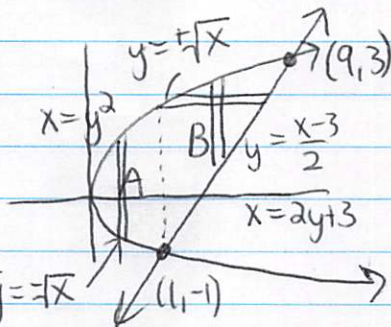 y=±√x
(9,3)
x=y²
B
y=\frac{x-3}{2}
A
x=2y+3
y=-√x
(1,-1)